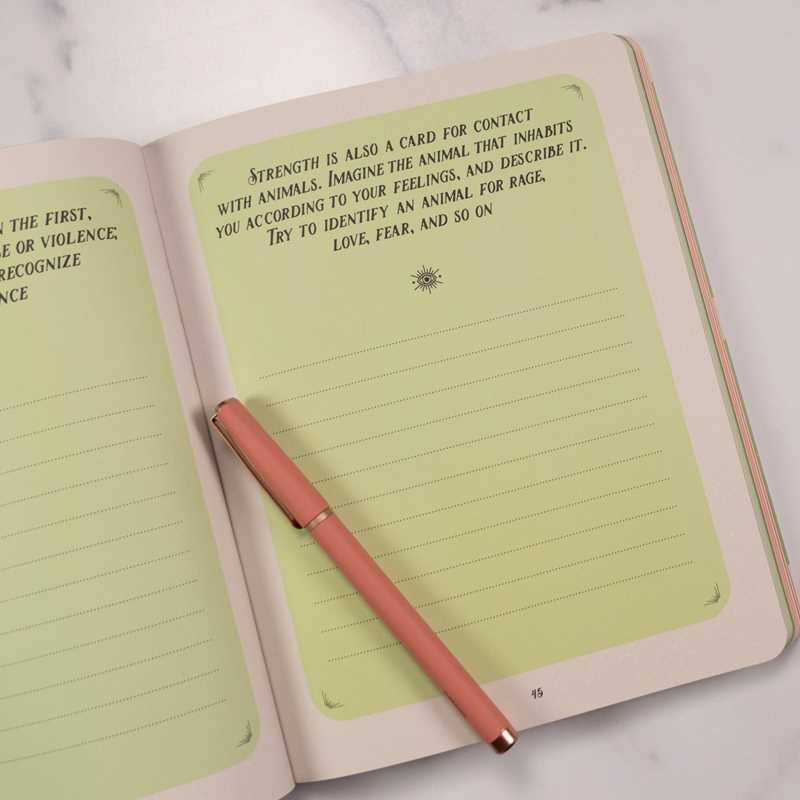 N THE FIRST,
E OR VIOLENCE;
RECOGNIZE
NCE
STRENGTH IS ALSO A CARD FOR CONTACT
WITH ANIMALS. IMAGINE THE ANIMAL THAT INHABITS
YOU ACCORDING TO YOUR FEELINGS, AND DESCRIBE IT.
TRY TO IDENTIFY AN ANIMAL FOR RAGE,
LOVE, FEAR, AND SO ON
45